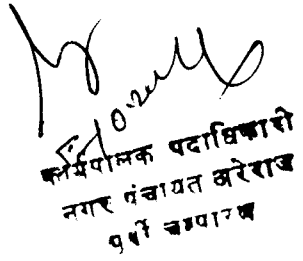 कार्यपालक पदाधिकारी
नगर पंचायत अरेराज
पूर्वी चम्पारण